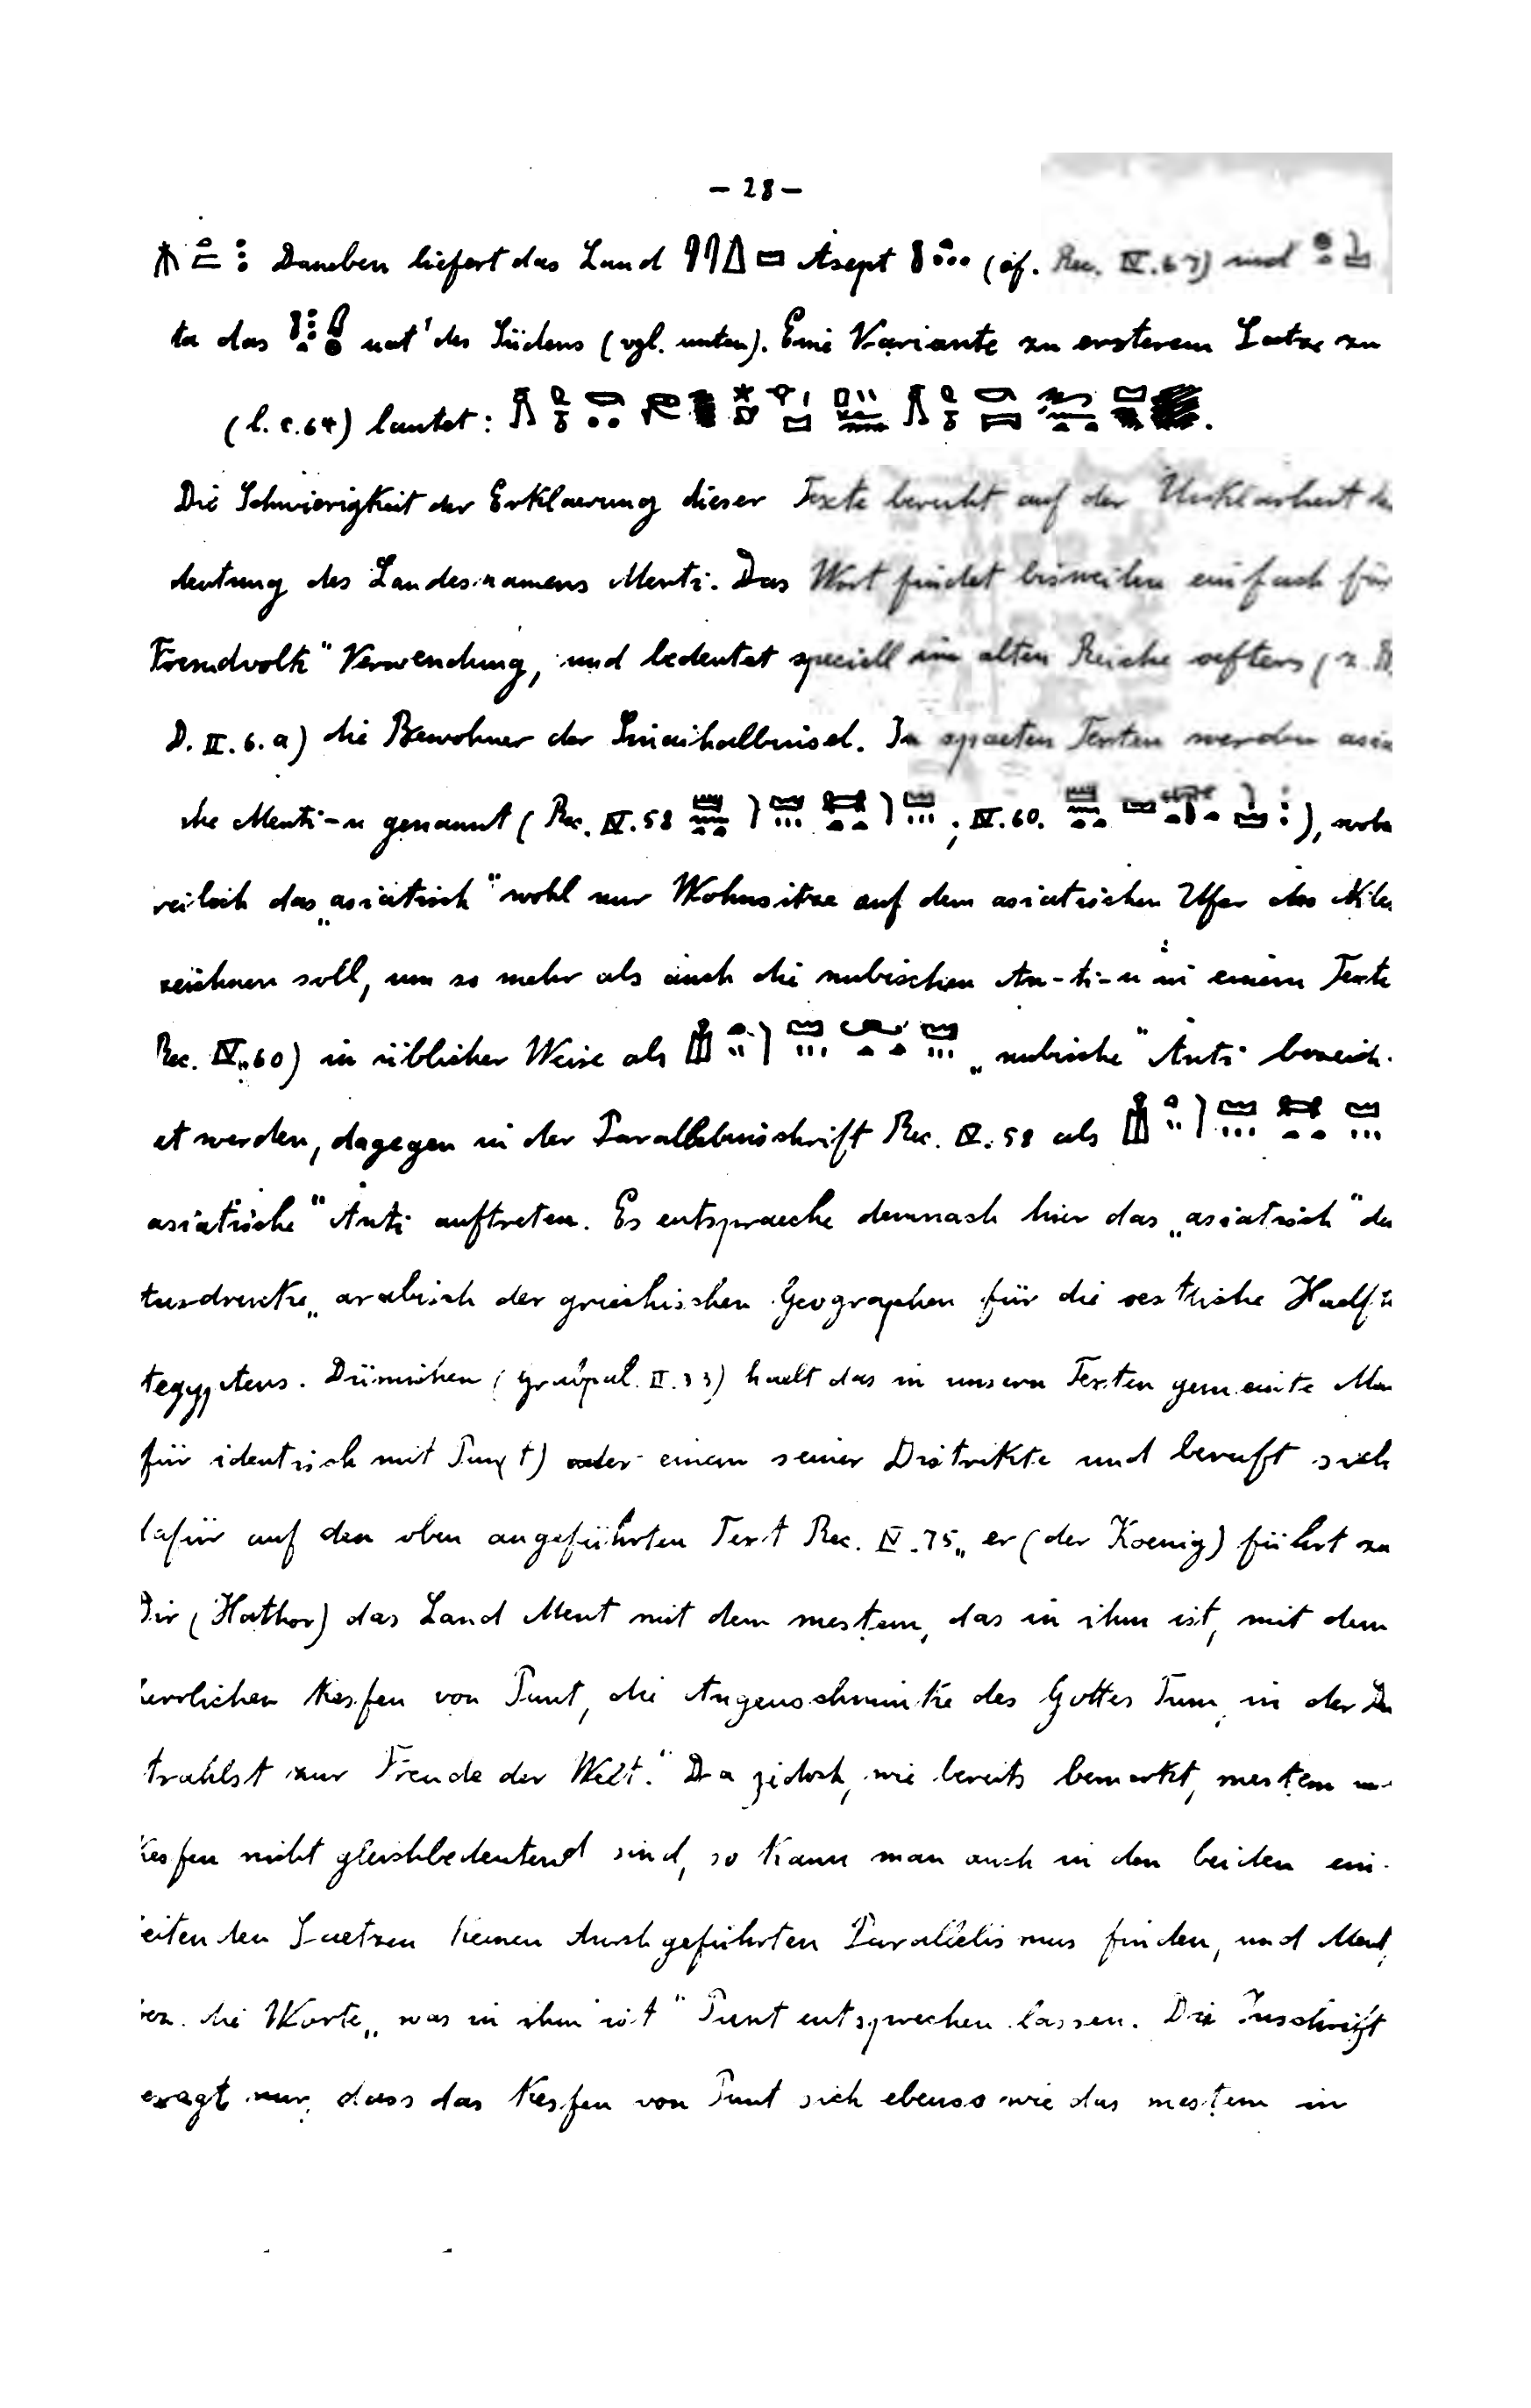 - 28 -
Daneben liefert das Land Asept (cf. Rec. IV. 67) und
ta das uat' des Südens (vgl. unten). Eine Variante zu ersterem Satze zu
(l. c. 64) lautet:
Die Schwierigkeit der Erklaerung dieser Texte beruht auf der Unklarheit de
deutung des Landesnamens Menti. Das Wort findet bisweilen einfach für
Fremdvolk" Verwendung, und bedeutet speciell im alten Reiche oefters (z. B.
D. II. 6. a) die Bewohner der Sinaihalbinsel. In spaeten Texten werden asia
she Menti-u genannt (Rec. IV. 58 ; IV. 60. ), wobe
reilich das „asiatisch" wohl nur Wohnsitze auf dem asiatischen Ufer des Niles
zeichnen soll, um so mehr als auch die nubischen An-ti-u in einem Texte
Rec. IV. 60) in üblicher Weise als „nubische" Anti bezeich-
et werden, dagegen in der Parallelinschrift Rec. IV. 58 als
asiatische" Anti auftreten. Es entspraeche demnach hier das „asiatisch" de
usdrucke „arabisch der griechischen Geographen für die oestliche Haelfte
egyptens. Dümichen (Grabpal. II. 33) haelt das in unsern Texten gemeinte Men
für identisch mit Pun(t) oder einem seiner Distrikte und beruft sich
dafür auf den oben angeführten Text Rec. IV. 75 „er (der Koenig) führt zu
Dir (Hathor) das Land Ment mit dem mestem, das in ihm ist, mit dem
herrlichen Kesfen von Punt, die Augenschminke des Gottes Tum, in der Du
trahlst zur Freude der Welt." Da jedoch, wie bereits bemerkt, mestem un
Kesfen nicht gleichbedeutend sind, so kann man auch in den beiden ein-
eitenden Saetzen keinen durchgeführten Parallelismus finden, und Ment,
bez. die Worte „was in ihm ist" Punt entsprechen lassen. Die Inschrift
esagt nur, dass das Kesfen von Punt sich ebenso wie das mestem in